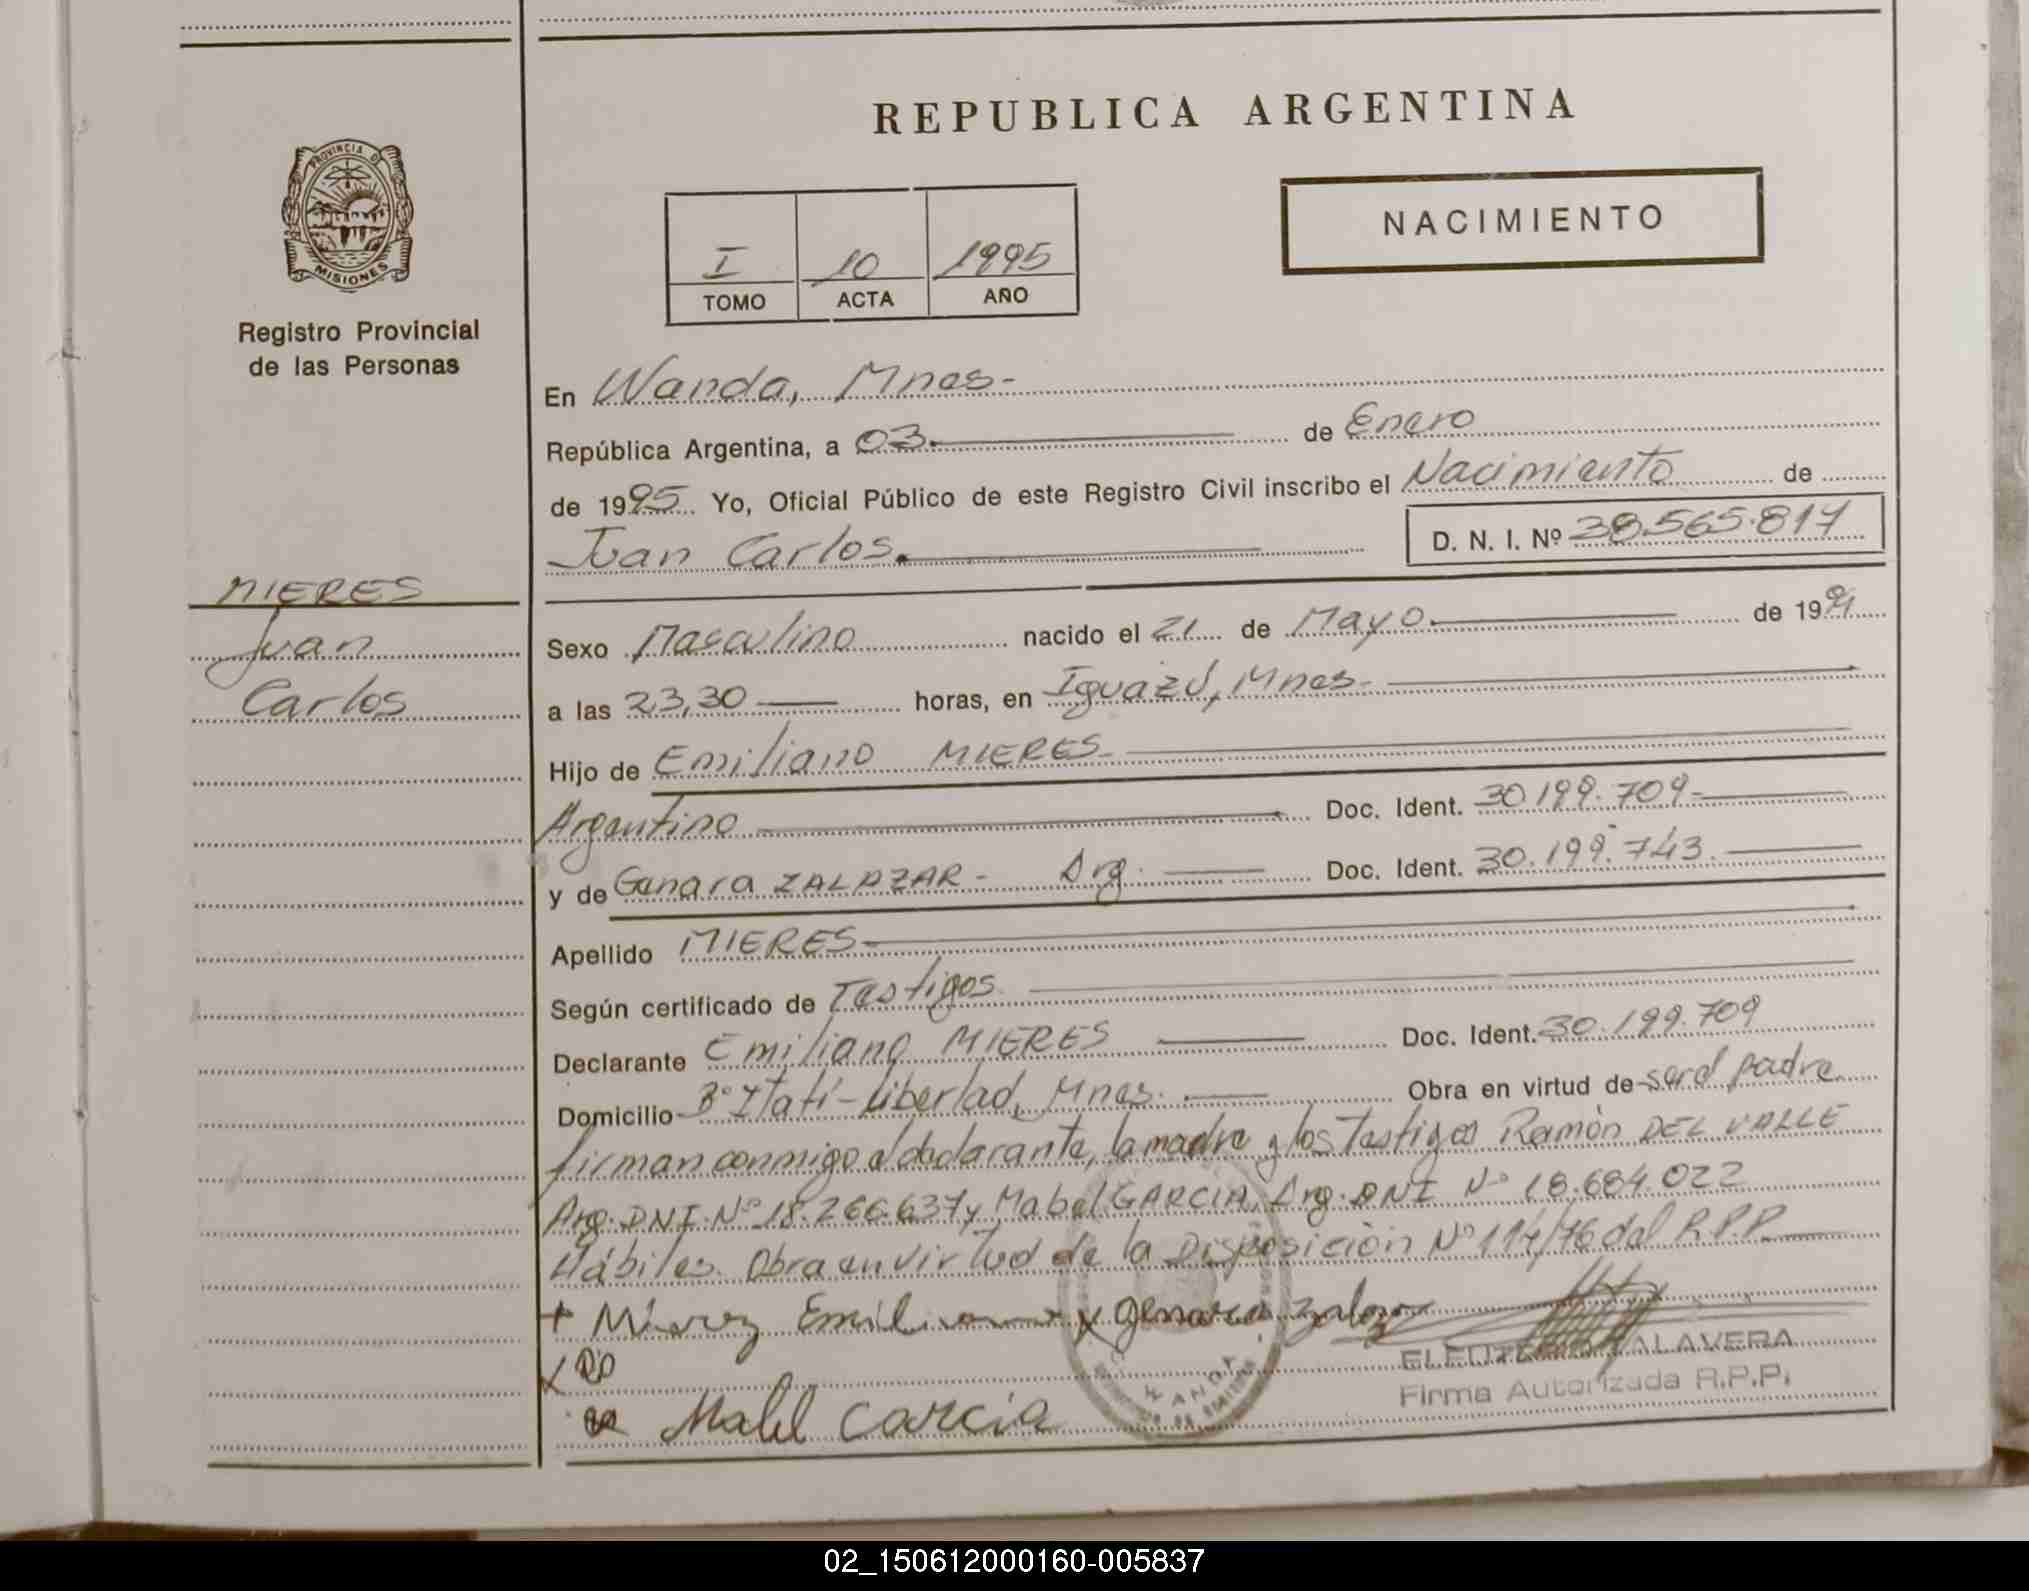 REPUBLICA ARGENTINA
PROVINCIA DE
MISIONES
Registro Provincial
de las Personas
NACIMIENTO
I 10 1995
TOMO ACTA AÑO
En Wanda, Mnes-
República Argentina, a 03. de Enero
de 1995 Yo, Oficial Público de este Registro Civil inscribo el Nacimiento de
Juan Carlos. D. N. I. Nº 38.565.817
MIERES
Juan
Carlos
Sexo Masculino nacido el 21 de Mayo de 1994
a las 23,30 horas, en Iguazú, Mnes-
Hijo de Emiliano MIERES
Argentino Doc. Ident. 30.199.709-
y de Genara ZALAZAR - Arg. Doc. Ident. 30.199.743.
Apellido MIERES
Según certificado de Testigos
Declarante Emiliano MIERES Doc. Ident. 30.199.709
Domicilio Bº Itatí-Libertad, Mnes. Obra en virtud de ser el padre
firman conmigo el declarante, la madre y los Testigos Ramón DEL VALLE
Arg. DNI. Nº 18.266.637 y Mabel GARCIA, Arg. DNI Nº 18.684.022
Hábiles. Obra en virtud de la Disposición Nº 114/76 del R.P.P.
+ Emiliano x Genara Zalazar
ALAVERA
Firma Autorizada R.P.P.
Mabel Garcia
WANDA
02_150612000160-005837